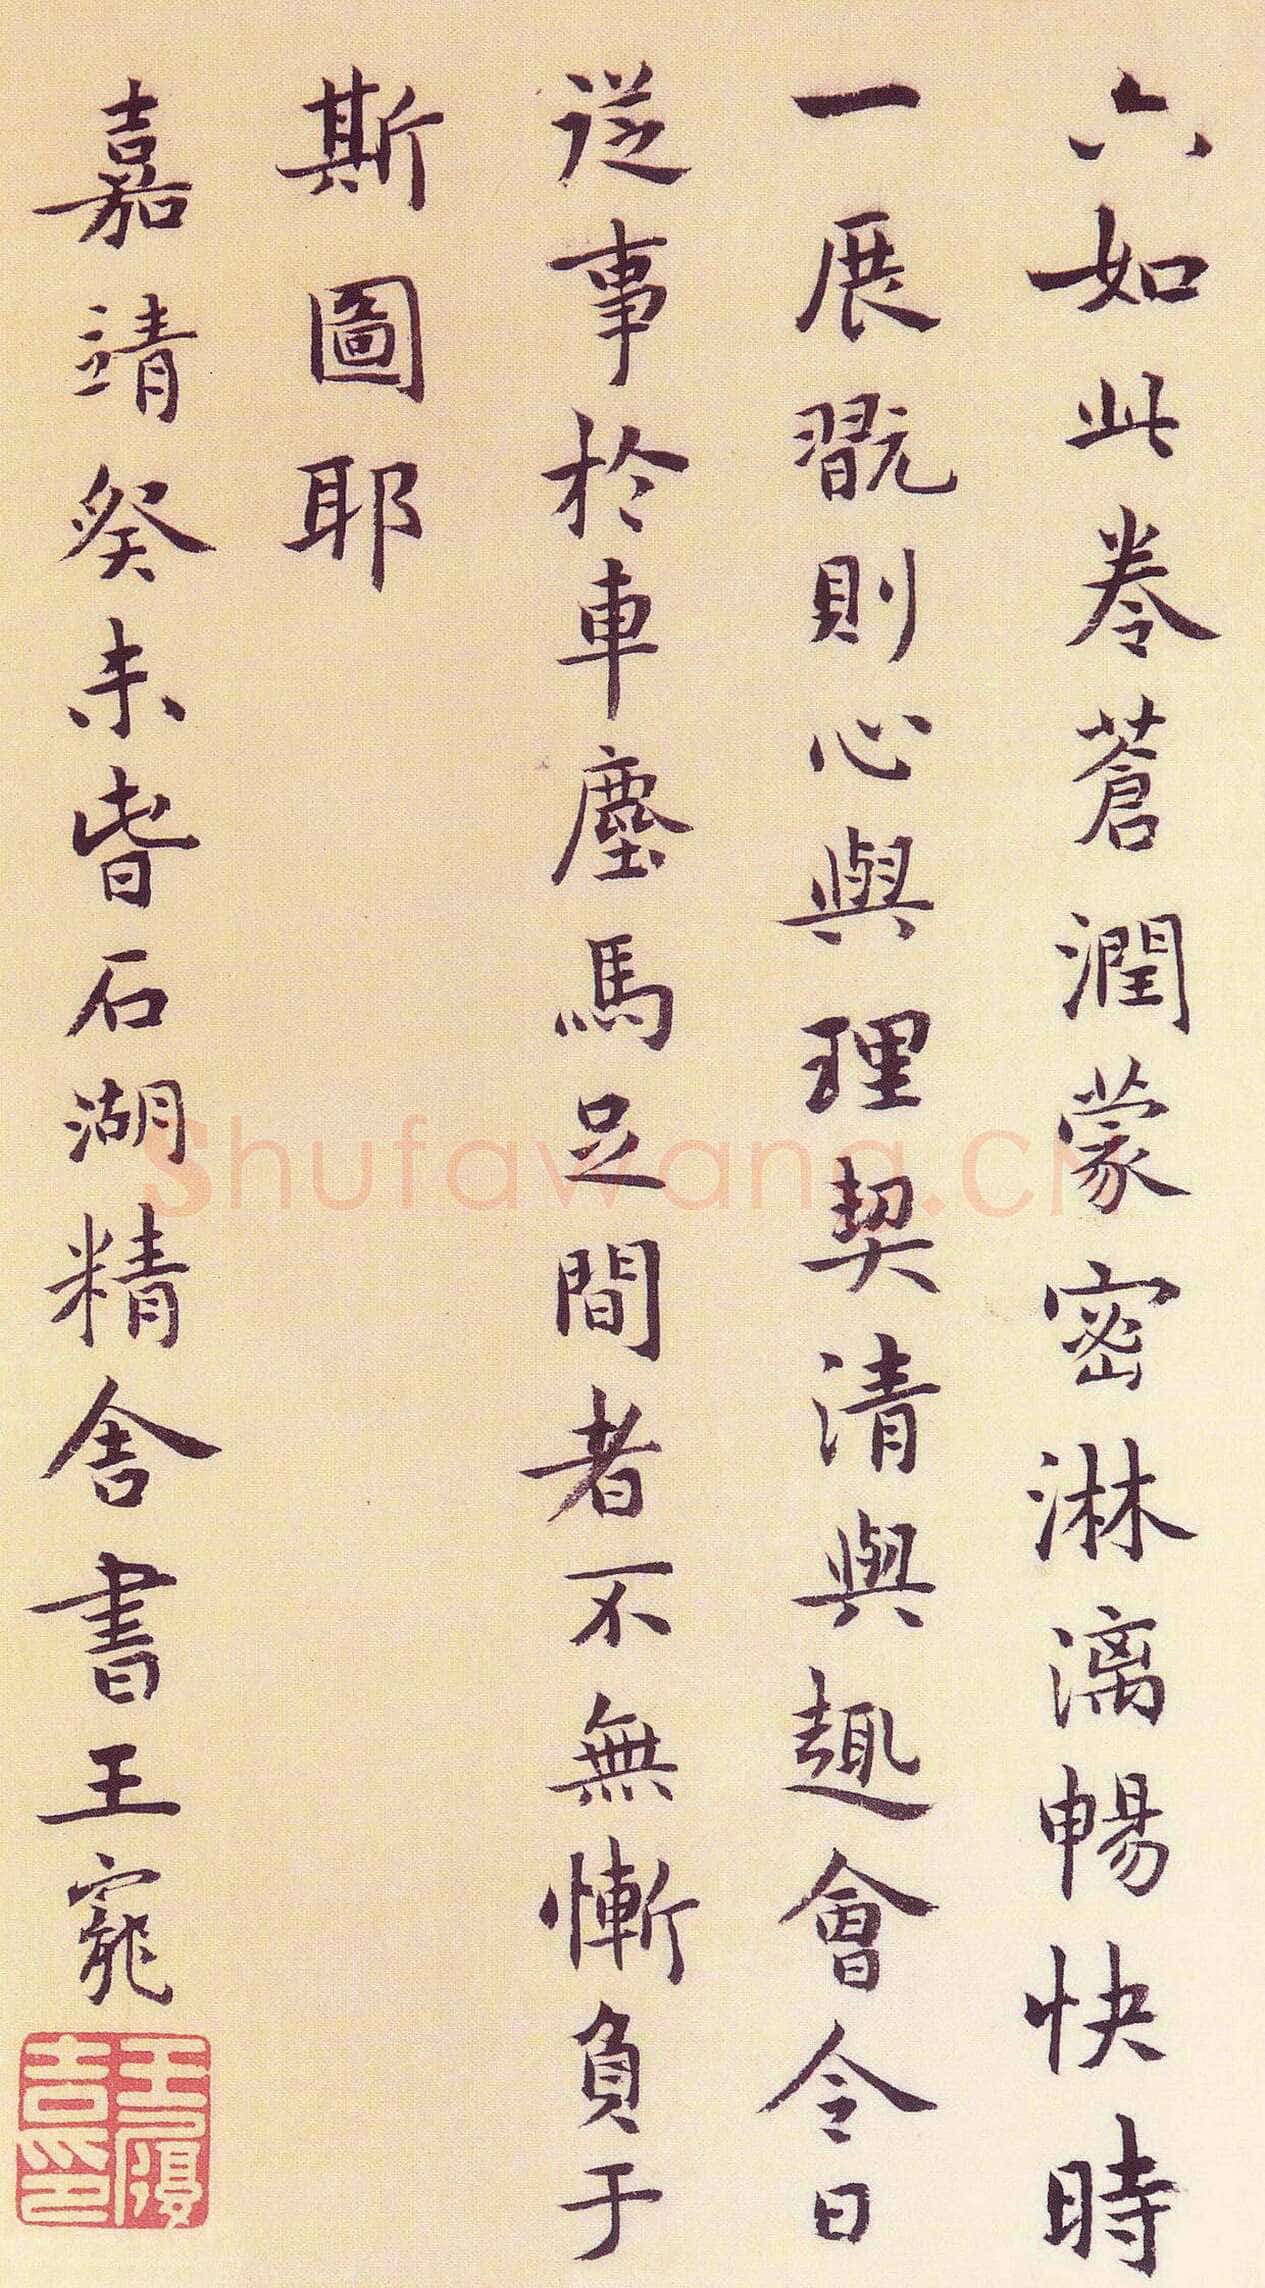 六如此卷蒼潤蒙密淋漓暢快時
一展翫則心與理契清與趣會今日
從事於車塵馬足間者不無慚負于
斯圖耶
嘉靖癸未石湖精舍書王寵
王履吉印
shufawang.cn